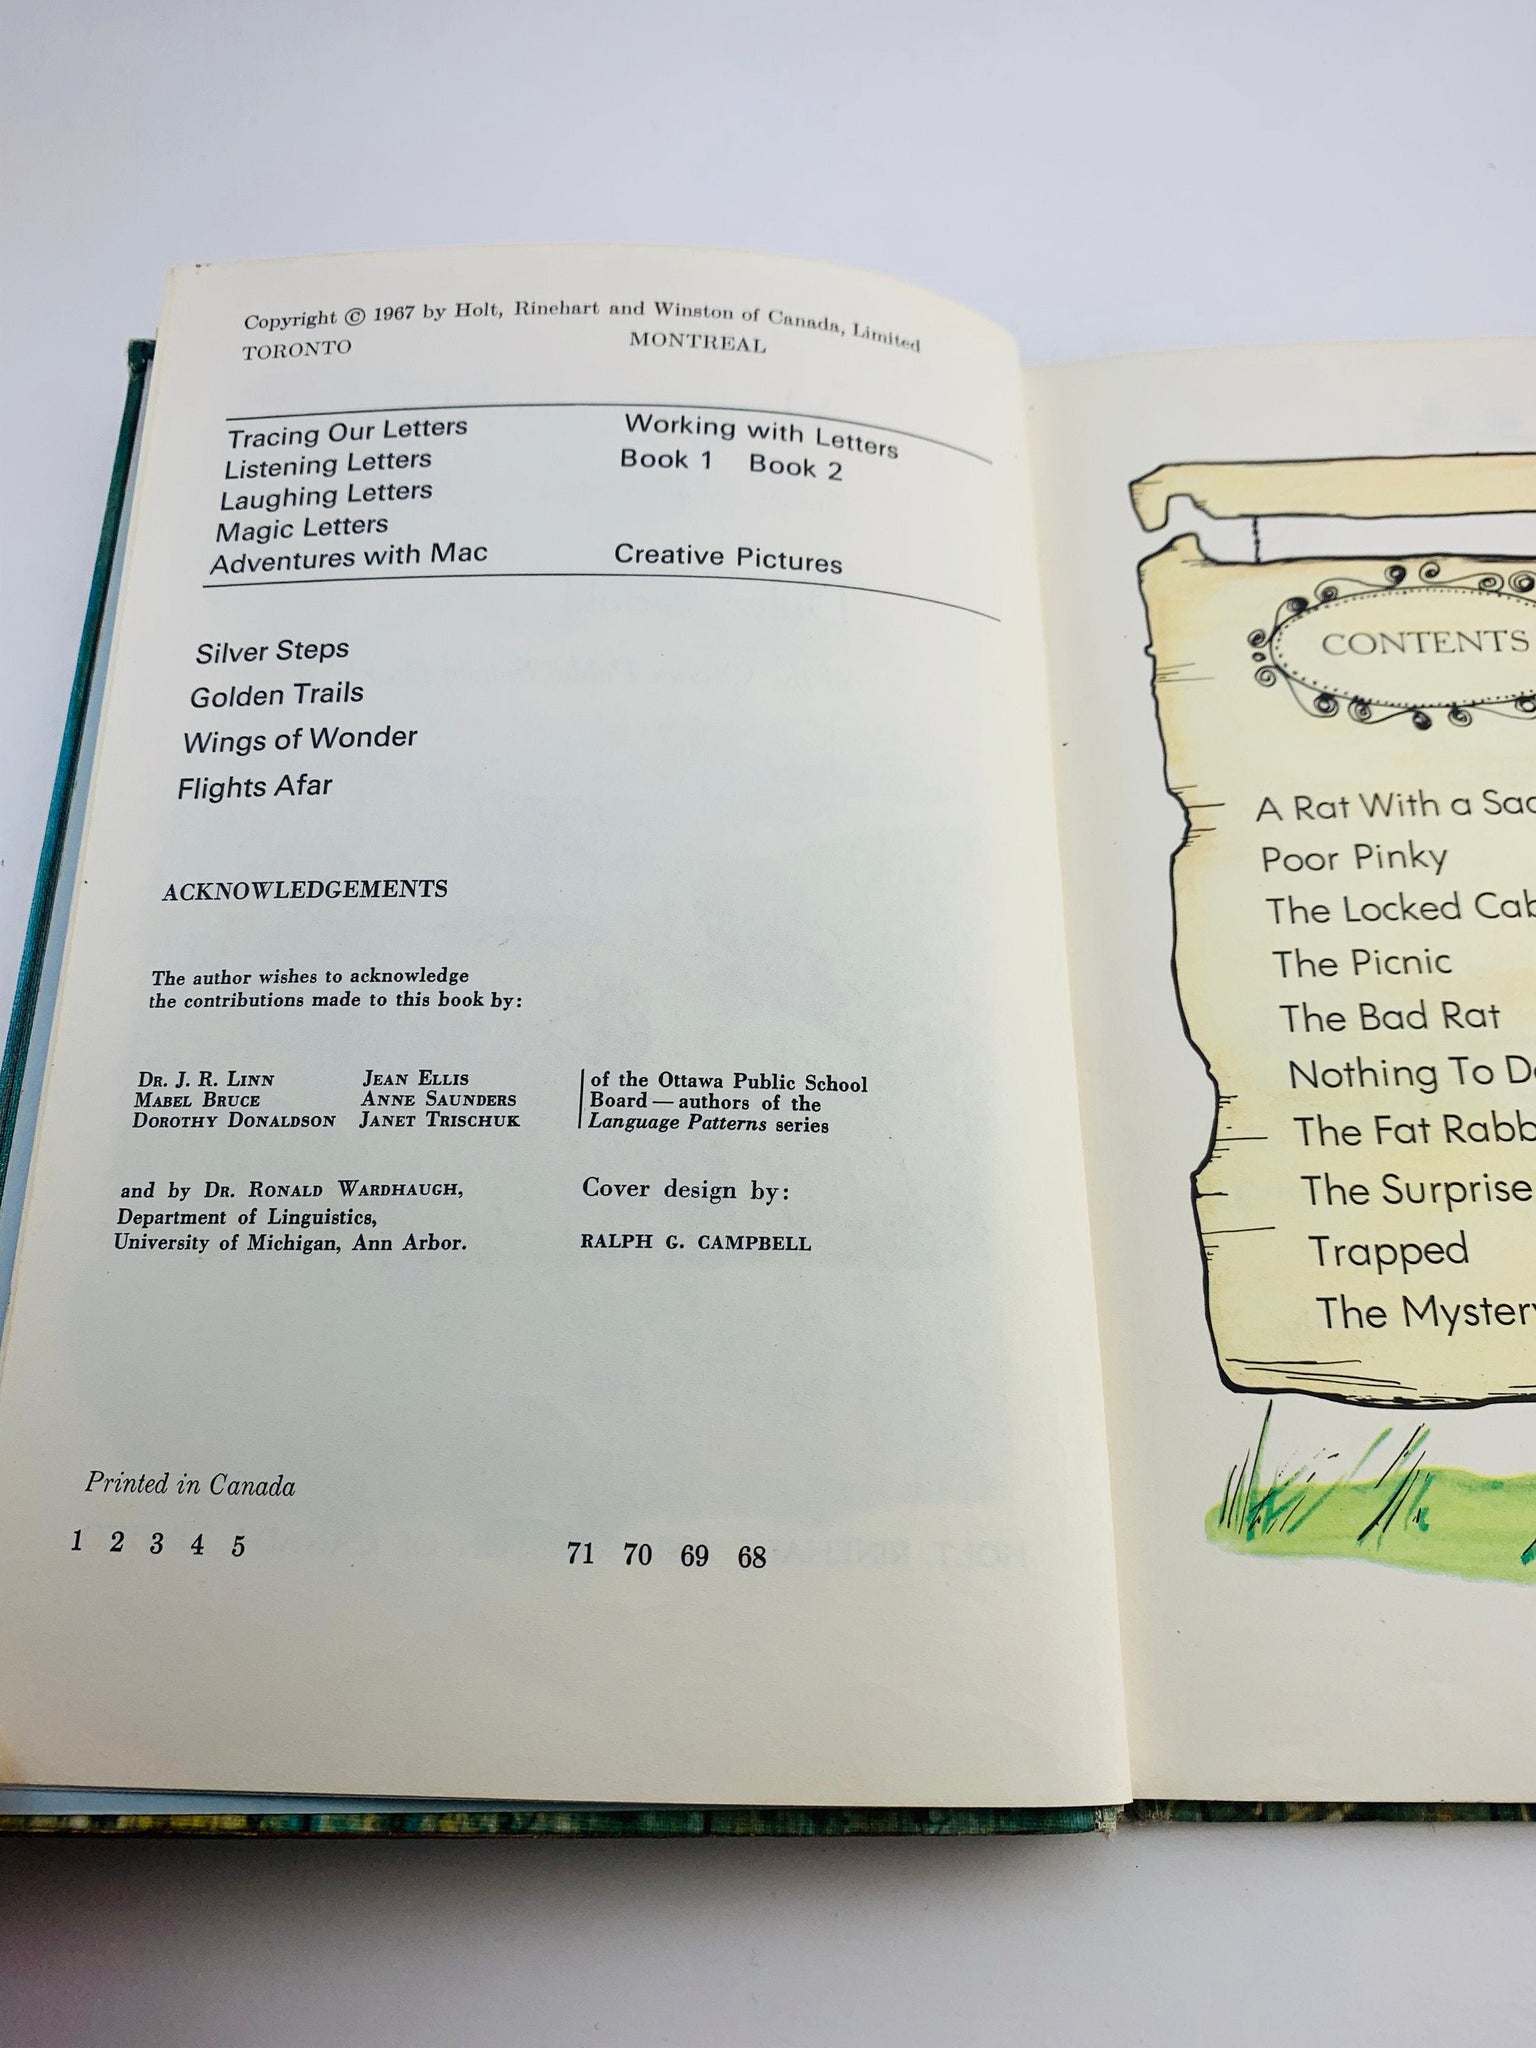 Copyright © 1967 by Holt, Rinehart and Winston of Canada, Limited
TORONTO MONTREAL
Tracing Our Letters Working with Letters
Listening Letters Book 1 Book 2
Laughing Letters
Magic Letters
Adventures with Mac Creative Pictures
Silver Steps
Golden Trails
Wings of Wonder
Flights Afar
ACKNOWLEDGEMENTS
The author wishes to acknowledge
the contributions made to this book by:
DR. J. R. LINN JEAN ELLIS of the Ottawa Public School
MABEL BRUCE ANNE SAUNDERS Board — authors of the
DOROTHY DONALDSON JANET TRISCHUK Language Patterns series
and by DR. RONALD WARDHAUGH, Cover design by:
Department of Linguistics,
University of Michigan, Ann Arbor. RALPH G. CAMPBELL
Printed in Canada
1 2 3 4 5 71 70 69 68
CONTENTS
A Rat With a
Poor Pinky
The Locked
The Picnic
The Bad Rat
Nothing To
The Fat
The Surprise
Trapped
The